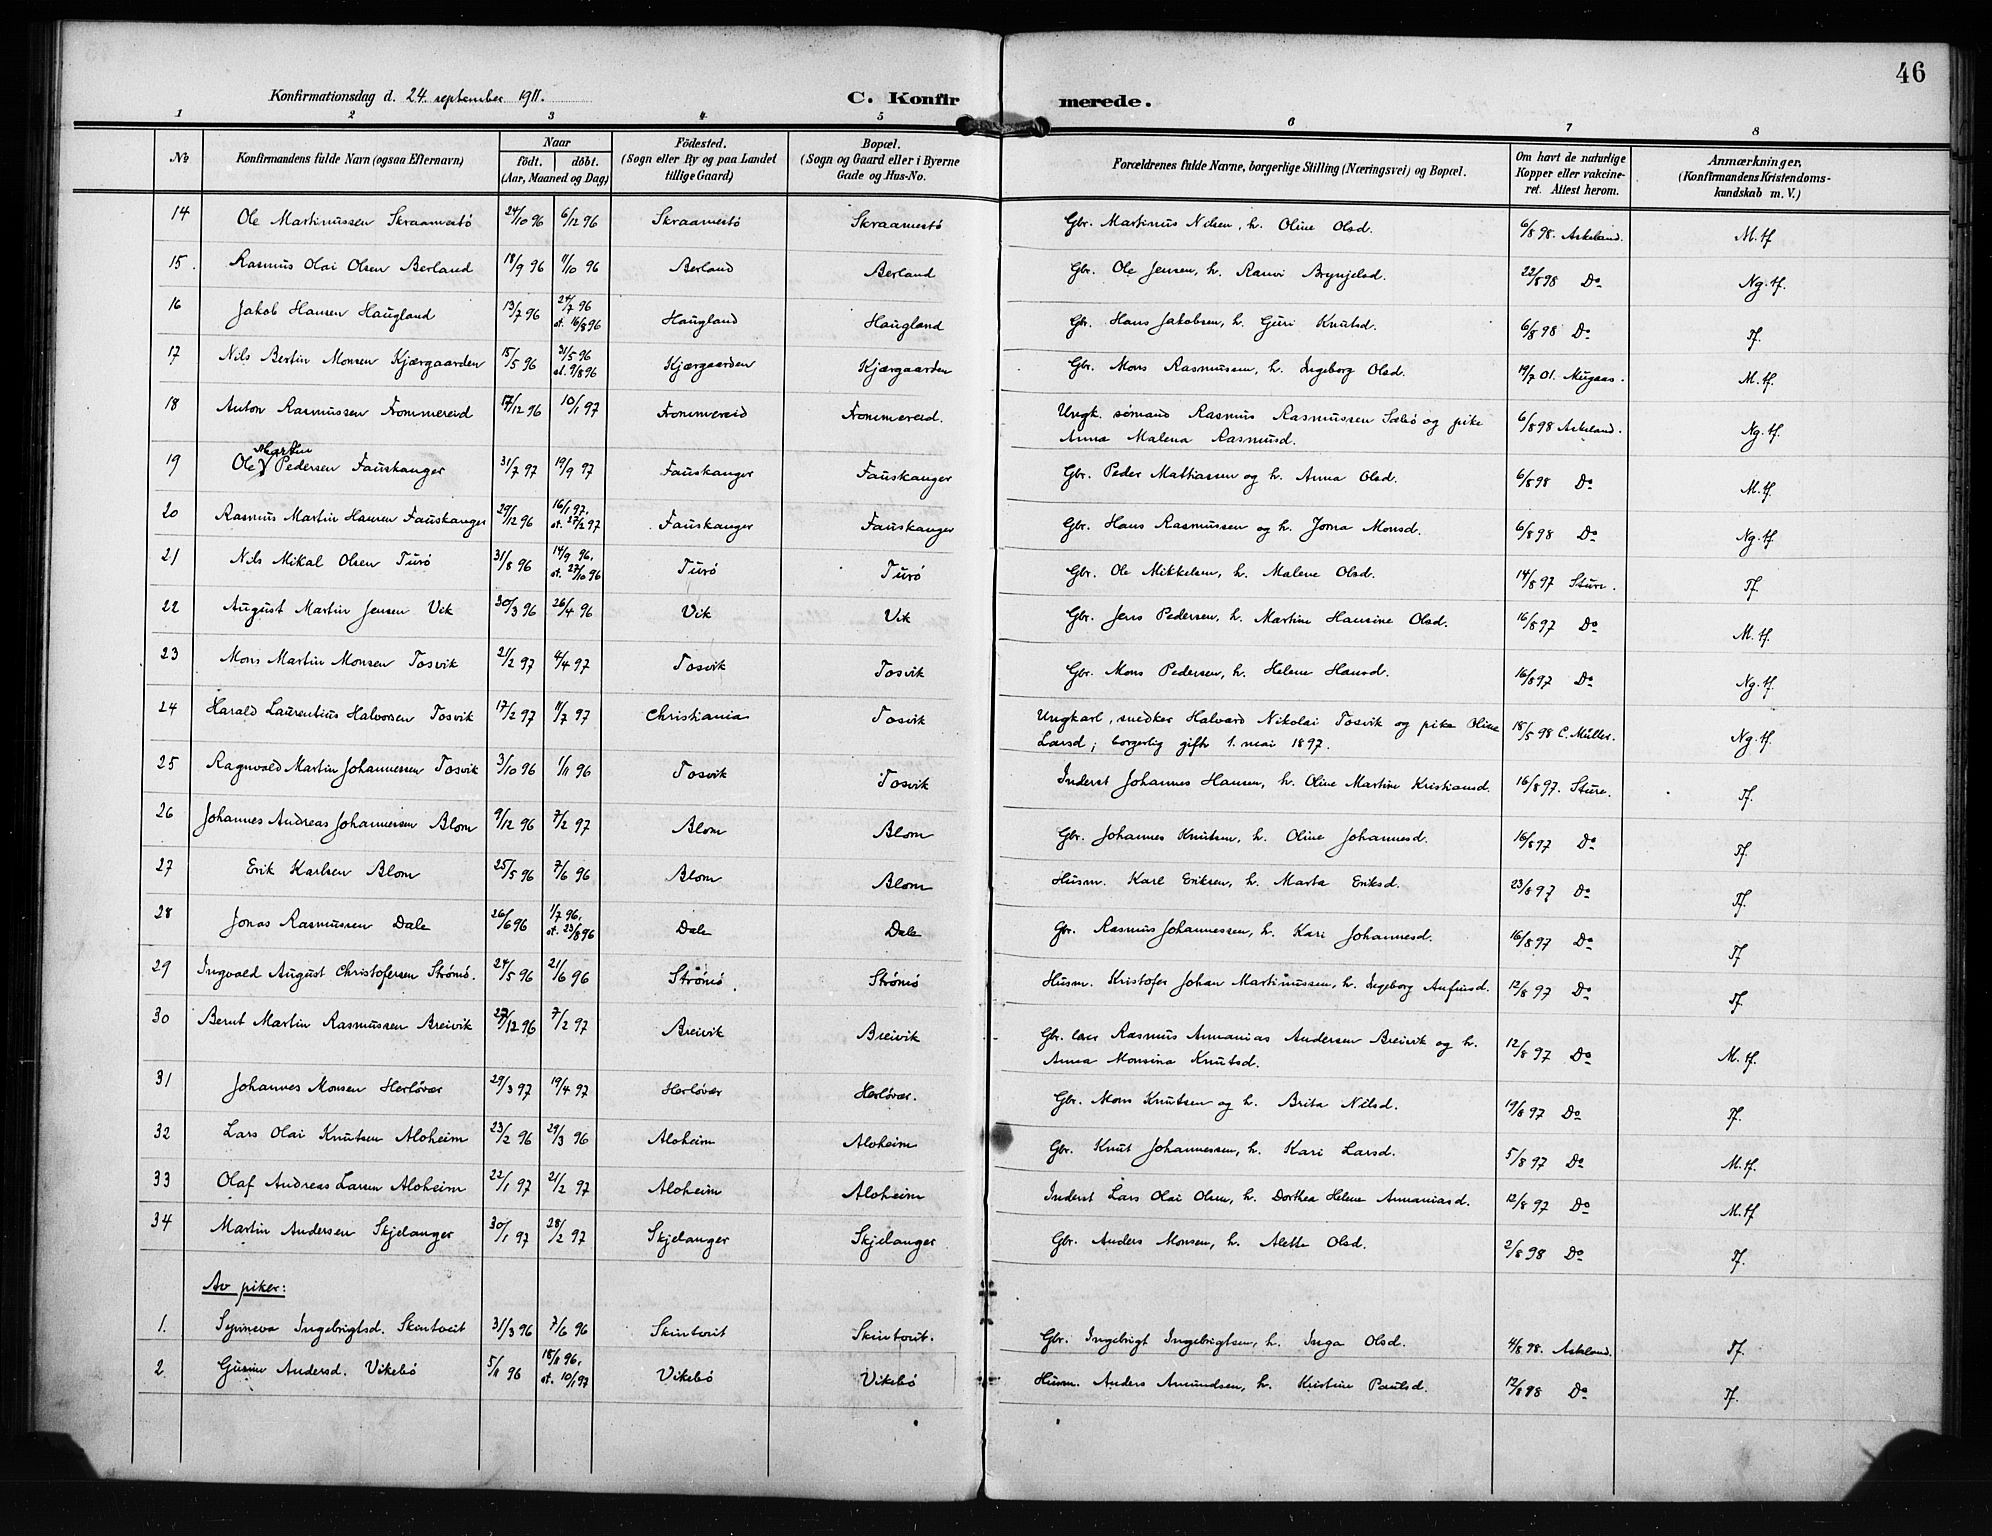 46
Konfirmationsdag d. 24. september 1911.
C. Konfirmerede.
1 2 3 4 5 6 7 8
No
Konfirmandens fulde Navn (ogsaa Efternavn)
Naar
födt. döbt.
(Aar, Maaned og Dag)
Födested.
(Sogn eller By og paa Landet
tillige Gaard)
Bopæl.
(Sogn og Gaard eller i Byerne
Gade og Hus-No.
Forældrenes fulde Navne, borgerlige Stilling (Næringsvei) og Bopæl.
Om havt de naturlige
Kopper eller vakcine-
ret. Attest herom.
Anmærkninger,
(Konfirmandens Kristendoms-
kundskab m. V.)
14 Ole Martinussen Skraamestö 24/10 96 6/12 96 Skraamestö Skraamestö Gbr. Martinus Nilsen, h. Oline Olsd. 6/8 98. Askeland. M.tf
15. Rasmus Olai Olsen Berland 18/9 96 11/10 96 Berland Berland Gbr. Ole Jensen, h. Ranvi Brynjelsd. 22/8 98 Do Ng.tf.
16 Jakob Hansen Haugland 13/7 96 24/7 96 st. 16/8 96 Haugland Haugland Gbr. Hans Jakobsen, h. Guri Knutsd. 6/8 98 Do Tf.
17 Nils Bertin Monsen Kjærgaarden 15/5 96 31/5 96 st. 9/8 96 Kjærgaarden Kjærgaarden Gbr. Mons Rasmussen, h. Ingeborg Olsd. 19/7 01. Mugaas. M.tf.
18 Anton Rasmussen Frommereid 17/12 96 10/1 97 Frommereid Frommereid. Ungk. sömand Rasmus Rasmussen Sæbö og pike
Anna Malena Rasmusd. 6/8 98 Askeland. Ng.tf.
19 Ole Martin Pedersen Fauskanger 31/7 97 19/9 97 Fauskanger Fauskanger Gbr. Peder Mathiassen og h. Anna Olsd. 6/8 98 Do M.tf.
20 Rasmus Martin Hansen Fauskanger 29/12 96 16/1 97. st. 27/2 97 Fauskanger Fauskanger Gbr. Hans Rasmussen og h. Jorna Monsd. 6/8 98 Do Ng.tf.
21 Nils Mikal Olsen Turö 31/8 96 14/9 96. st. 27/10 96 Turö Turö Gbr. Ole Mikkelsen, h. Malene Olsd. 14/8 97 Sture. Tf.
22 August Martin Jensen Vik 30/3 96 26/4 96 Vik Vik Gbr. Jens Pedersen, h. Martine Hansine Olsd. 16/8 97 Do M.tf.
23 Mons Martin Monsen Tosvik 21/2 97 4/4 97 Tosvik Tosvik Gbr. Mons Pedersen, h. Helene Hansd. 16/8 97 Do Ng.tf.
24 Harald Laurentius Halvorsen Tosvik 17/2 97 11/7 97 Christiania Tosvik Ungkarl, snedker Halvard Nikolai Tosvik og pike Oline
Larsd; borgerlig gift 1. mai 1897. 18/5 98 C. Müller. Ng.tf.
25 Ragnvald Martin Johannessen Tosvik 3/10 96 1/11 96 Tosvik Tosvik Inderst Johannes Hansen, h. Oline Martine Kristiansd. 16/8 97. Sture. Tf.
26 Johannes Andreas Johannessen Blom 9/12 96 7/2 97 Blom Blom Gbr. Johannes Knutsen, h. Oline Johannesd. 16/8 97 Do Tf.
27 Erik Karlsen Blom 25/5 96 7/6 96 Blom Blom Husm. Karl Eriksen, h. Marta Eriksd. 23/8 97 Do Tf.
28 Jonas Rasmussen Dale 26/6 96 1/7 96. st. 23/8 96 Dale Dale Gbr. Rasmus Johannessen, h. Kari Johannesd. 16/8 97 Do Tf
29 Ingvald August Christofersen Strömö. 24/5 96 21/6 96 Strömö. Strömö Husm. Kristofer Johan Martinussen, h. Ingeborg Anfinsd. 12/8 97 Do Tf.
30 Bernt Martin Rasmussen Breivik 27/12 96 7/2 97 Breivik Breivik Gbr. lær Rasmus Annanias Andersen Breivik og h.
Anna Monsina Knutsd. 12/8 97 Do M.tf.
31 Johannes Monsen Herlövær 29/3 97 19/4 97 Herlövær Herlövær. Gbr. Mons Knutsen og h. Brita Nilsd. 19/8 97 Do Tf.
32 Lars Olai Knutsen Aloheim 23/2 96 29/3 96 Aloheim Aloheim Gbr. Knut Johannessen, h. Kari Larsd. 5/8 97 Do M.tf.
33 Olaf Andreas Larsen Aloheim 22/1 97 21/2 97 Aloheim Aloheim Inderst Lars Olai Olsen, h. Dorthea Helene Annaniasd. 12/8 97 Do M.tf
34 Martin Andersen Skjelanger 30/1 97 28/2 97 Skjelanger Skjelanger Gbr. Anders Monsen, h. Alette Olsd. 2/8 98 Do Tf.
Av piker:
1. Ingebrigtsd. Skintveit 31/3 96 7/6 96 Skintveit Skintveit. Gbr. Ingebrigt Ingebrigtsen, h. Inga Olsd. 4/8 98. Askeland. Tf.
2. Gurine Andersd. Vikebö 5/11 96 18/11 96. st. 10/1 97 Vikebö Vikebö Husm. Anders Amundsen, h. Kristine Paulsd. 12/8 98 Do Tf.